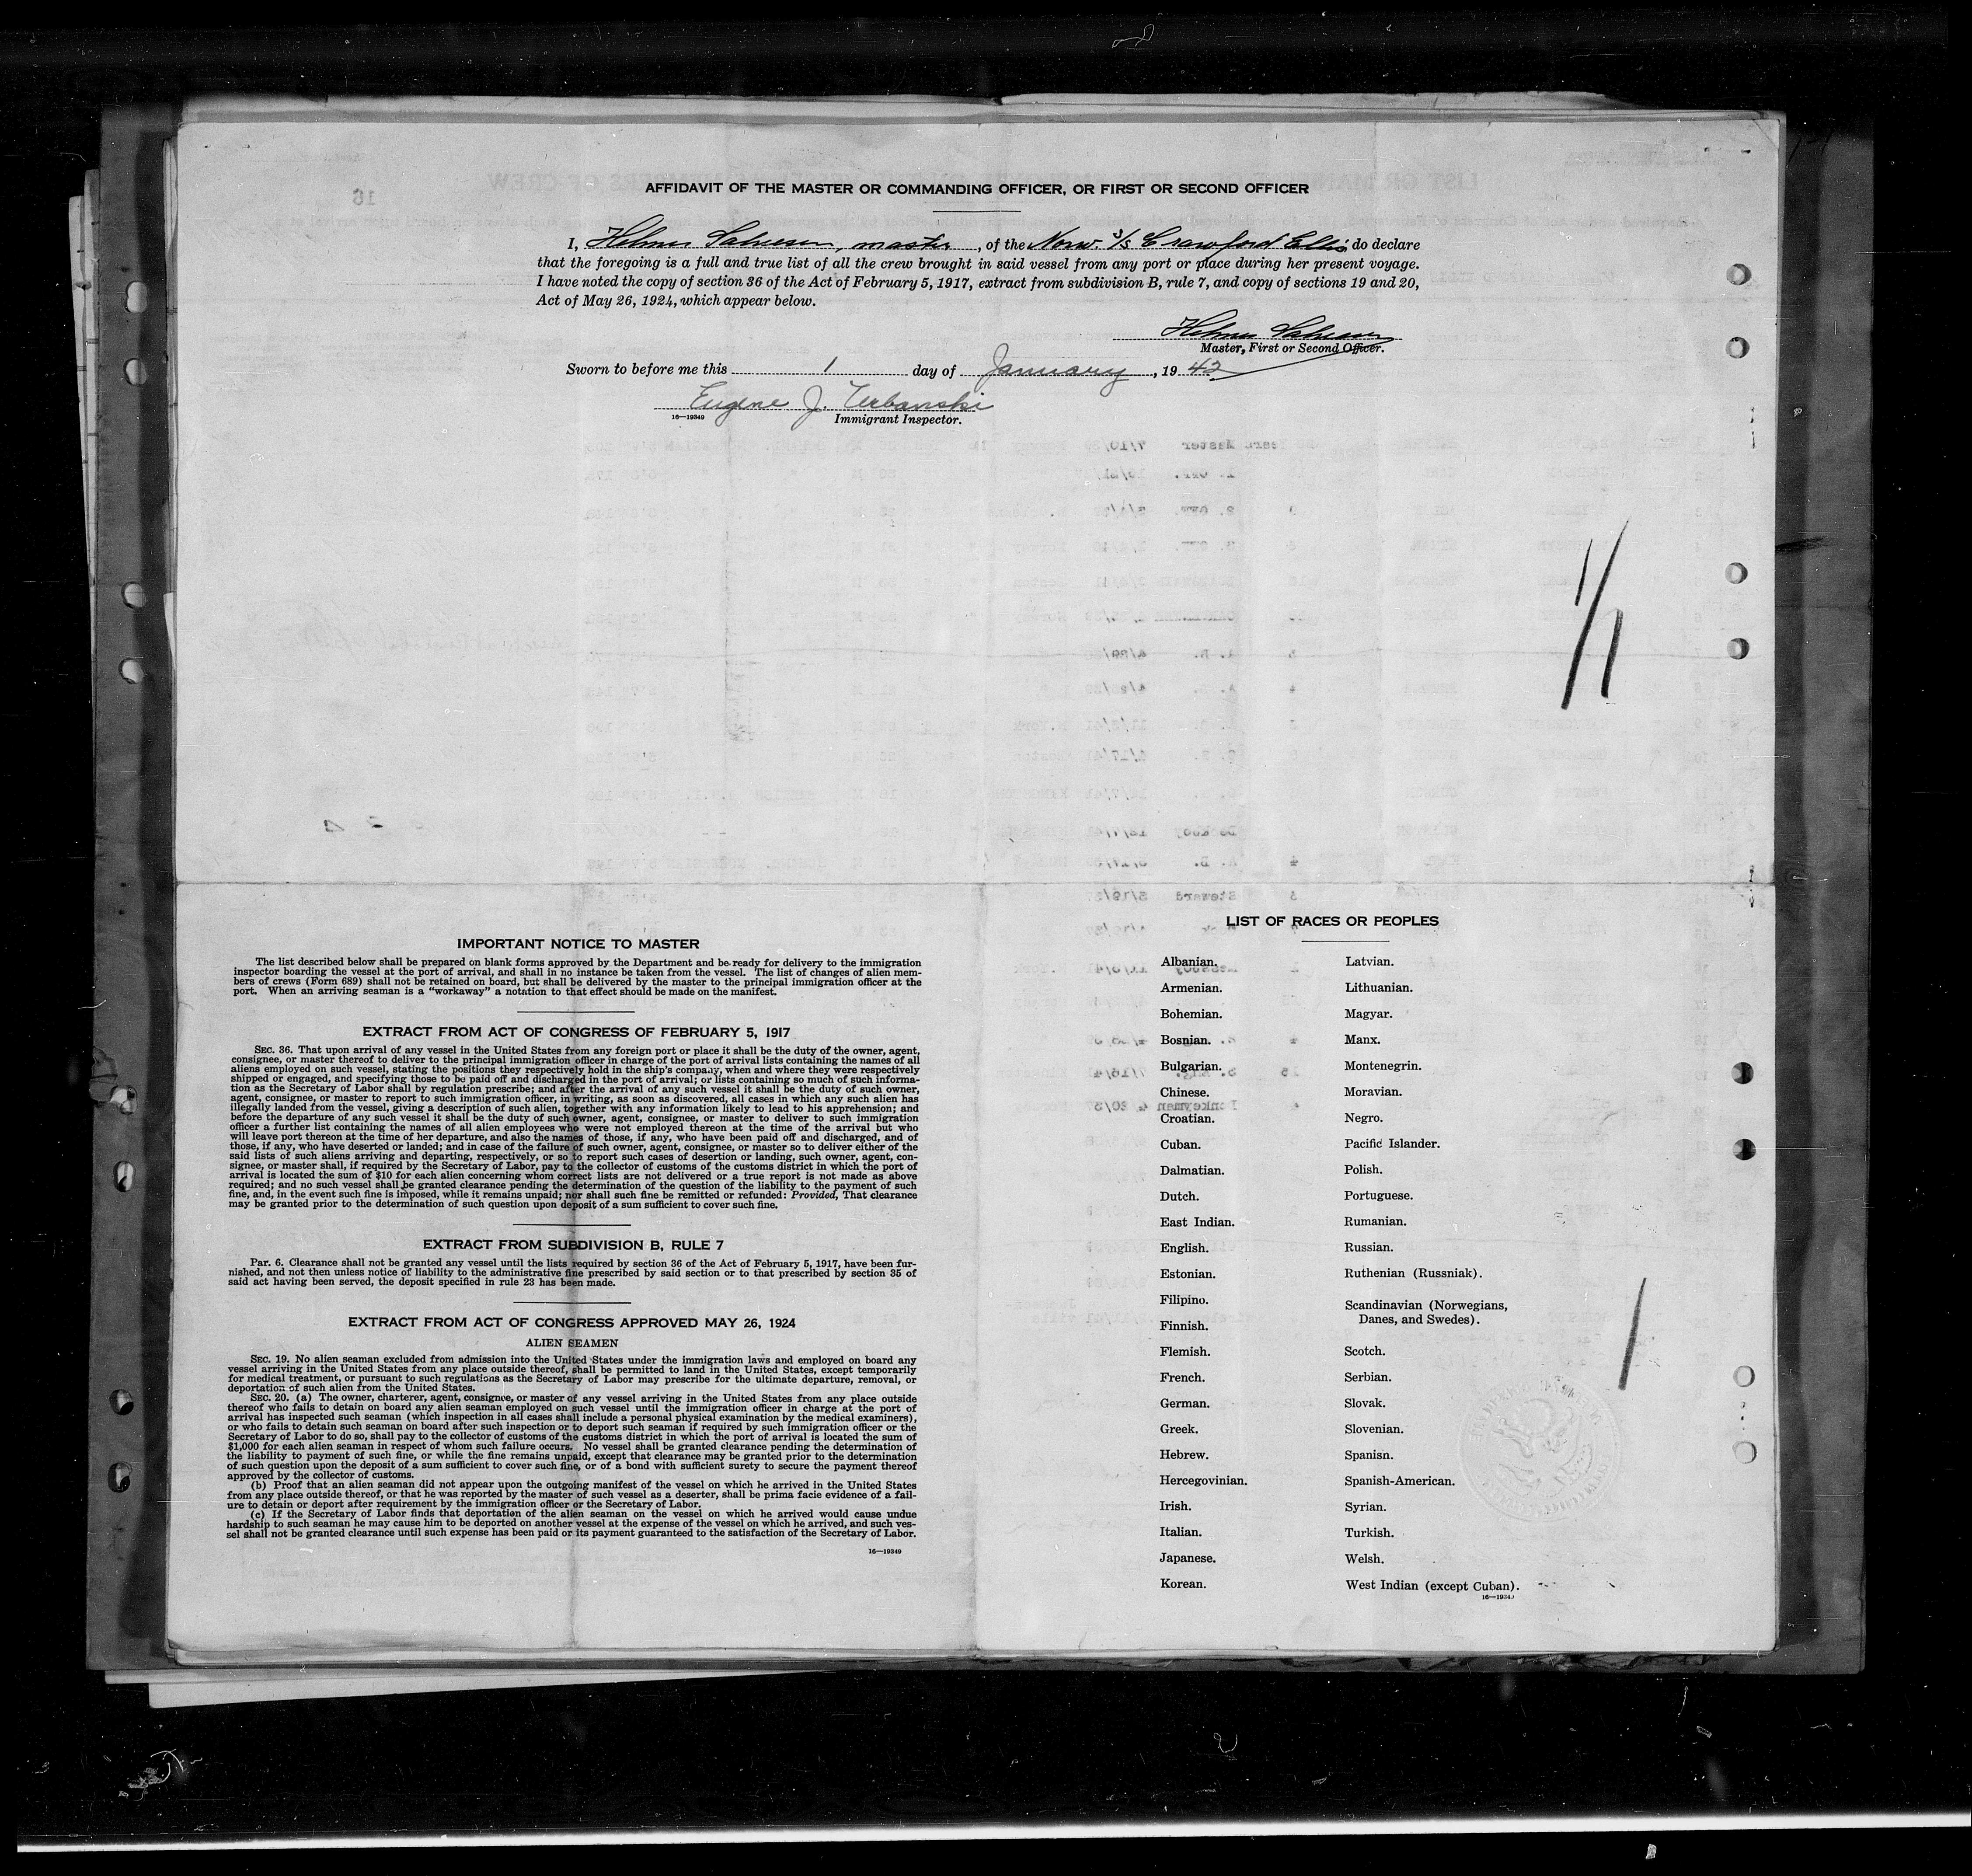 AFFIDAVIT OF THE MASTER OR COMMANDING OFFICER, OR FIRST OR SECOND OFFICER
I, Helmer Salvesen, master, of the Norw. S/S Crawford Ellis do declare
that the foregoing is a full and true list of all the crew brought in said vessel from any port or place during her present voyage.
I have noted the copy of section 36 of the Act of February 5, 1917, extract from subdivision B, rule 7, and copy of sections 19 and 20,
Act of May 26, 1924, which appear below.
Helmer Salvesen
Master, First or Second Officer.
Sworn to before me this 1 day of January, 1942
Eugene J.
16—19349 Immigrant Inspector.
1/1
IMPORTANT NOTICE TO MASTER
The list described below shall be prepared on blank forms approved by the Department and be ready for delivery to the immigration
inspector boarding the vessel at the port of arrival, and shall in no instance be taken from the vessel. The list of changes of alien mem-
bers of crews (Form 689) shall not be retained on board, but shall be delivered by the master to the principal immigration officer at the
port. When an arriving seaman is a "workaway" a notation to that effect should be made on the manifest.
EXTRACT FROM ACT OF CONGRESS OF FEBRUARY 5, 1917
SEC. 36. That upon arrival of any vessel in the United States from any foreign port or place it shall be the duty of the owner, agent,
consignee, or master thereof to deliver to the principal immigration officer in charge of the port of arrival lists containing the names of all
aliens employed on such vessel, stating the positions they respectively hold in the ship's company, when and where they were respectively
shipped or engaged, and specifying those to be paid off and discharged in the port of arrival; or lists containing so much of such informa-
tion as the Secretary of Labor shall by regulation prescribe; and after the arrival of any such vessel it shall be the duty of such owner,
agent, consignee, or master to report to such immigration officer, in writing, as soon as discovered, all cases in which any such alien has
illegally landed from the vessel, giving a description of such alien, together with any information likely to lead to his apprehension; and
before the departure of any such vessel it shall be the duty of such owner, agent, consignee, or master to deliver to such immigration
officer a further list containing the names of all alien employees who were not employed thereon at the time of the arrival but who
will leave port thereon at the time of her departure, and also the names of those, if any, who have been paid off and discharged, and of
those, if any, who have deserted or landed; and in case of the failure of such owner, agent, consignee, or master so to deliver either of the
said lists of such aliens arriving and departing, respectively, or so to report such cases of desertion or landing, such owner, agent, con-
signee, or master shall, if required by the Secretary of Labor, pay to the collector of customs of the customs district in which the port of
arrival is located the sum of $10 for each alien concerning whom correct lists are not delivered or a true report is not made as above
required; and no such vessel shall be granted clearance pending the determination of the question of the liability to the payment of such
fine, and, in the event such fine is imposed, while it remains unpaid; nor shall such fine be remitted or refunded: Provided, That clearance
may be granted prior to the determination of such question upon deposit of a sum sufficient to cover such fine.
EXTRACT FROM SUBDIVISION B, RULE 7
Par. 6. Clearance shall not be granted any vessel until the lists required by section 36 of the Act of February 5, 1917, have been fur-
nished, and not then unless notice of liability to the administrative fine prescribed by said section or to that prescribed by section 35 of
said act having been served, the deposit specified in rule 23 has been made.
EXTRACT FROM ACT OF CONGRESS APPROVED MAY 26, 1924
ALIEN SEAMEN
SEC. 19. No alien seaman excluded from admission into the United States under the immigration laws and employed on board any
vessel arriving in the United States from any place outside thereof, shall be permitted to land in the United States, except temporarily
for medical treatment, or pursuant to such regulations as the Secretary of Labor may prescribe for the ultimate departure, removal, or
deportation of such alien from the United States.
SEC. 20. (a) The owner, charterer, agent, consignee, or master of any vessel arriving in the United States from any place outside
thereof who fails to detain on board any alien seaman employed on such vessel until the immigration officer in charge at the port of
arrival has inspected such seaman (which inspection in all cases shall include a personal physical examination by the medical examiners),
or who fails to detain such seaman on board after such inspection or to deport such seaman if required by such immigration officer or the
Secretary of Labor to do so, shall pay to the collector of customs of the customs district in which the port of arrival is located the sum of
$1,000 for each alien seaman in respect of whom such failure occurs. No vessel shall be granted clearance pending the determination of
the liability to payment of such fine, or while the fine remains unpaid, except that clearance may be granted prior to the determination
of such question upon the deposit of a sum sufficient to cover such fine, or of a bond with sufficient surety to secure the payment thereof
approved by the collector of customs.
(b) Proof that an alien seaman did not appear upon the outgoing manifest of the vessel on which he arrived in the United States
from any place outside thereof, or that he was reported by the master of such vessel as a deserter, shall be prima facie evidence of a fail-
ure to detain or deport after requirement by the immigration officer or the Secretary of Labor.
(c) If the Secretary of Labor finds that deportation of the alien seaman on the vessel on which he arrived would cause undue
hardship to such seaman he may cause him to be deported on another vessel at the expense of the vessel on which he arrived, and such ves-
sel shall not be granted clearance until such expense has been paid or its payment guaranteed to the satisfaction of the Secretary of Labor.
16—19349
LIST OF RACES OR PEOPLES
Albanian.
Armenian.
Bohemian.
Bosnian.
Bulgarian.
Chinese.
Croatian.
Cuban.
Dalmatian.
Dutch.
East Indian.
English.
Estonian.
Filipino.
Finnish.
Flemish.
French.
German.
Greek.
Hebrew.
Hercegovinian.
Irish.
Italian.
Japanese.
Korean.
Latvian.
Lithuanian.
Magyar.
Manx.
Montenegrin.
Moravian.
Negro.
Pacific Islander.
Polish.
Portuguese.
Rumanian.
Russian.
Ruthenian (Russniak).
Scandinavian (Norwegians,
Danes, and Swedes).
Scotch.
Serbian.
Slovak.
Slovenian.
Spanish.
Spanish-American.
Syrian.
Turkish.
Welsh.
West Indian (except Cuban).
16—19349